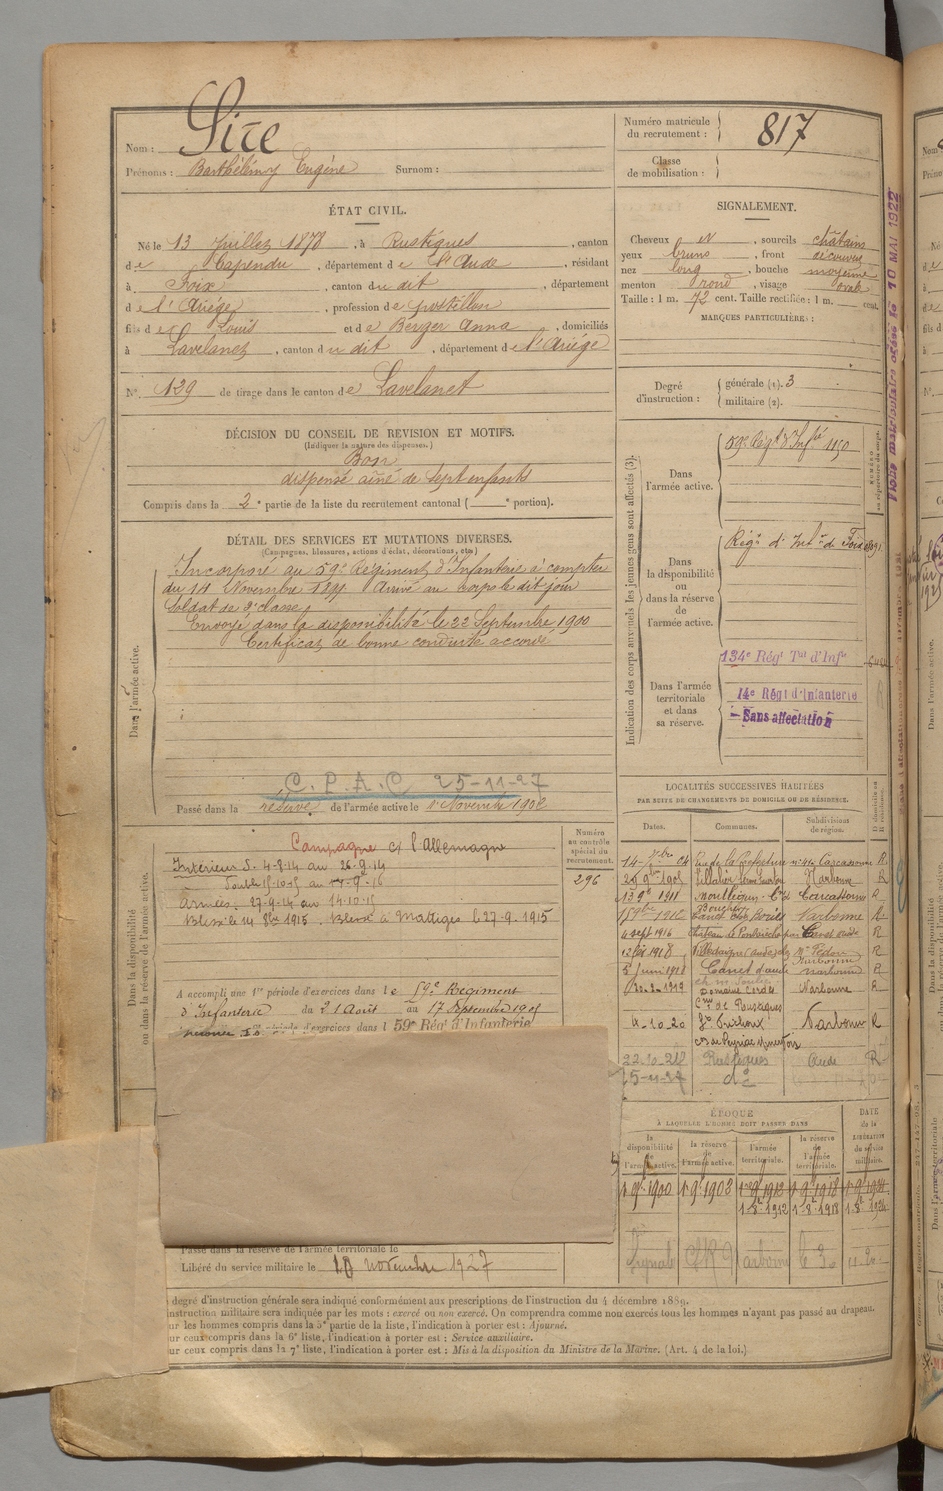 Nom : Sire
Prénoms : Barthélémy Eugène Surnom :
Numéro matricule du recrutement : 817
Classe de mobilisation :
ÉTAT CIVIL.
Né le 13 Juillet 1878, à Rustiques, canton
de Capendu, département de l'Aude, résidant
à Foix, canton du dit, département
de l'Ariège, profession de postillon
fils de Louis et de Berger Anna, domiciliés
à Lavelanet, canton du dit, département de l'Ariège
N° 129 de tirage dans le canton de Lavelanet
SIGNALEMENT.
Cheveux et, sourcils châtains
yeux bruns, front découvert
nez long, bouche moyenne
menton rond, visage ovale
Taille : 1 m. 72 cent. Taille rectifiée : 1 m. cent.
MARQUES PARTICULIÈRES :
Degré d'instruction : générale (1). 3
militaire (2).
DÉCISION DU CONSEIL DE REVISION ET MOTIFS.
(Indiquer la nature des dispenses.)
Bon
dispensé aîné de sept enfants
Compris dans la 2e partie de la liste du recrutement cantonal ( e portion).
DÉTAIL DES SERVICES ET MUTATIONS DIVERSES.
(Campagnes, blessures, actions d'éclat, décorations, etc.)
Dans l'armée active.
Incorporé au 59e Régiment d'Infanterie à compter
du 14 Novembre 1899 Arrivé au corps le dit jour
Soldat de 2e classe.
Envoyé dans la disponibilité le 22 Septembre 1900
Certificat de bonne conduite accordé
C.P.A.C 25-11-27
Passé dans la réserve de l'armée active le 1er Novembre 1902
Dans la disponibilité ou dans la réserve de l'armée active.
Numéro au contrôle spécial du recrutement.
296
Campagne c/ l'Allemagne
Intérieur S. 4-8-14 au 26-9-14
Armées. 27-9-14 au 14-10-15
Blessé le 14 8bre 1915. Blessé à Wattigs le 27-9-1915
A accompli une 1re période d'exercices dans le 59e Régiment
d'Infanterie du 21 Août au 17 Septembre 1905
période d'exercices dans l 59e Rég' d'Infanterie
Passé dans la réserve de l'armée territoriale le
Libéré du service militaire le 10 novembre 1927
Indication des corps auxquels les jeunes gens sont affectés (3).
Dans l'armée active.
59e Régt d'Infrie 1150
Dans la disponibilité ou dans la réserve de l'armée active.
Régt d'Inf. de Foix
Dans l'armée territoriale et dans sa réserve.
134e Régt Tal d'Infie
14e Régt d'Infanterie
Sans affectation
NUMÉRO au répertoire du corps.
Fiche matriculaire opérée le 10 MAI 1922
LOCALITÉS SUCCESSIVES HABITÉES
PAR SUITE DE CHANGEMENTS DE DOMICILE OU DE RÉSIDENCE.
Dates. Communes. Subdivisions de région. D domicile ou R résidence.
14-7bre 04 Rue de la Préfecture n° 42 Carcassonne R.
Narbonne R
Carcassonne R
Narbonne R.
4 sept 1916 Château de Pontserme par Canet aude R
12 fév 1918 R
5 Juin 1918 Canet d'aude Narbonne R
20-2-1919 Narbonne R
Cne de Rustiques
4-10-20 Narbonne R
22-10-26 Rustiques Aude R
25-11-27 do
ÉPOQUE
À LAQUELLE L'HOMME DOIT PASSER DANS
la disponibilité de l'armée active. la réserve de l'armée active. l'armée territoriale. la réserve de l'armée territoriale. DATE de la LIBÉRATION du service militaire.
1 9e 1900 1er 9e 1903 1er 9e 1912 1er 9e 1918 1er 9e 1924
1-8e 1912 1-8e 1918 1-8e 1924
degré d'instruction générale sera indiqué conformément aux prescriptions de l'instruction du 4 décembre 1889.
instruction militaire sera indiquée par les mots : exercé ou non exercé. On comprendra comme non exercés tous les hommes n'ayant pas passé au drapeau.
ur les hommes compris dans la 5e partie de la liste, l'indication à porter est : Ajourné.
ur ceux compris dans la 6e liste, l'indication à porter est : Service auxiliaire.
ur ceux compris dans la 7e liste, l'indication à porter est : Mis à la disposition du Ministre de la Marine. (Art. 4 de la loi.)